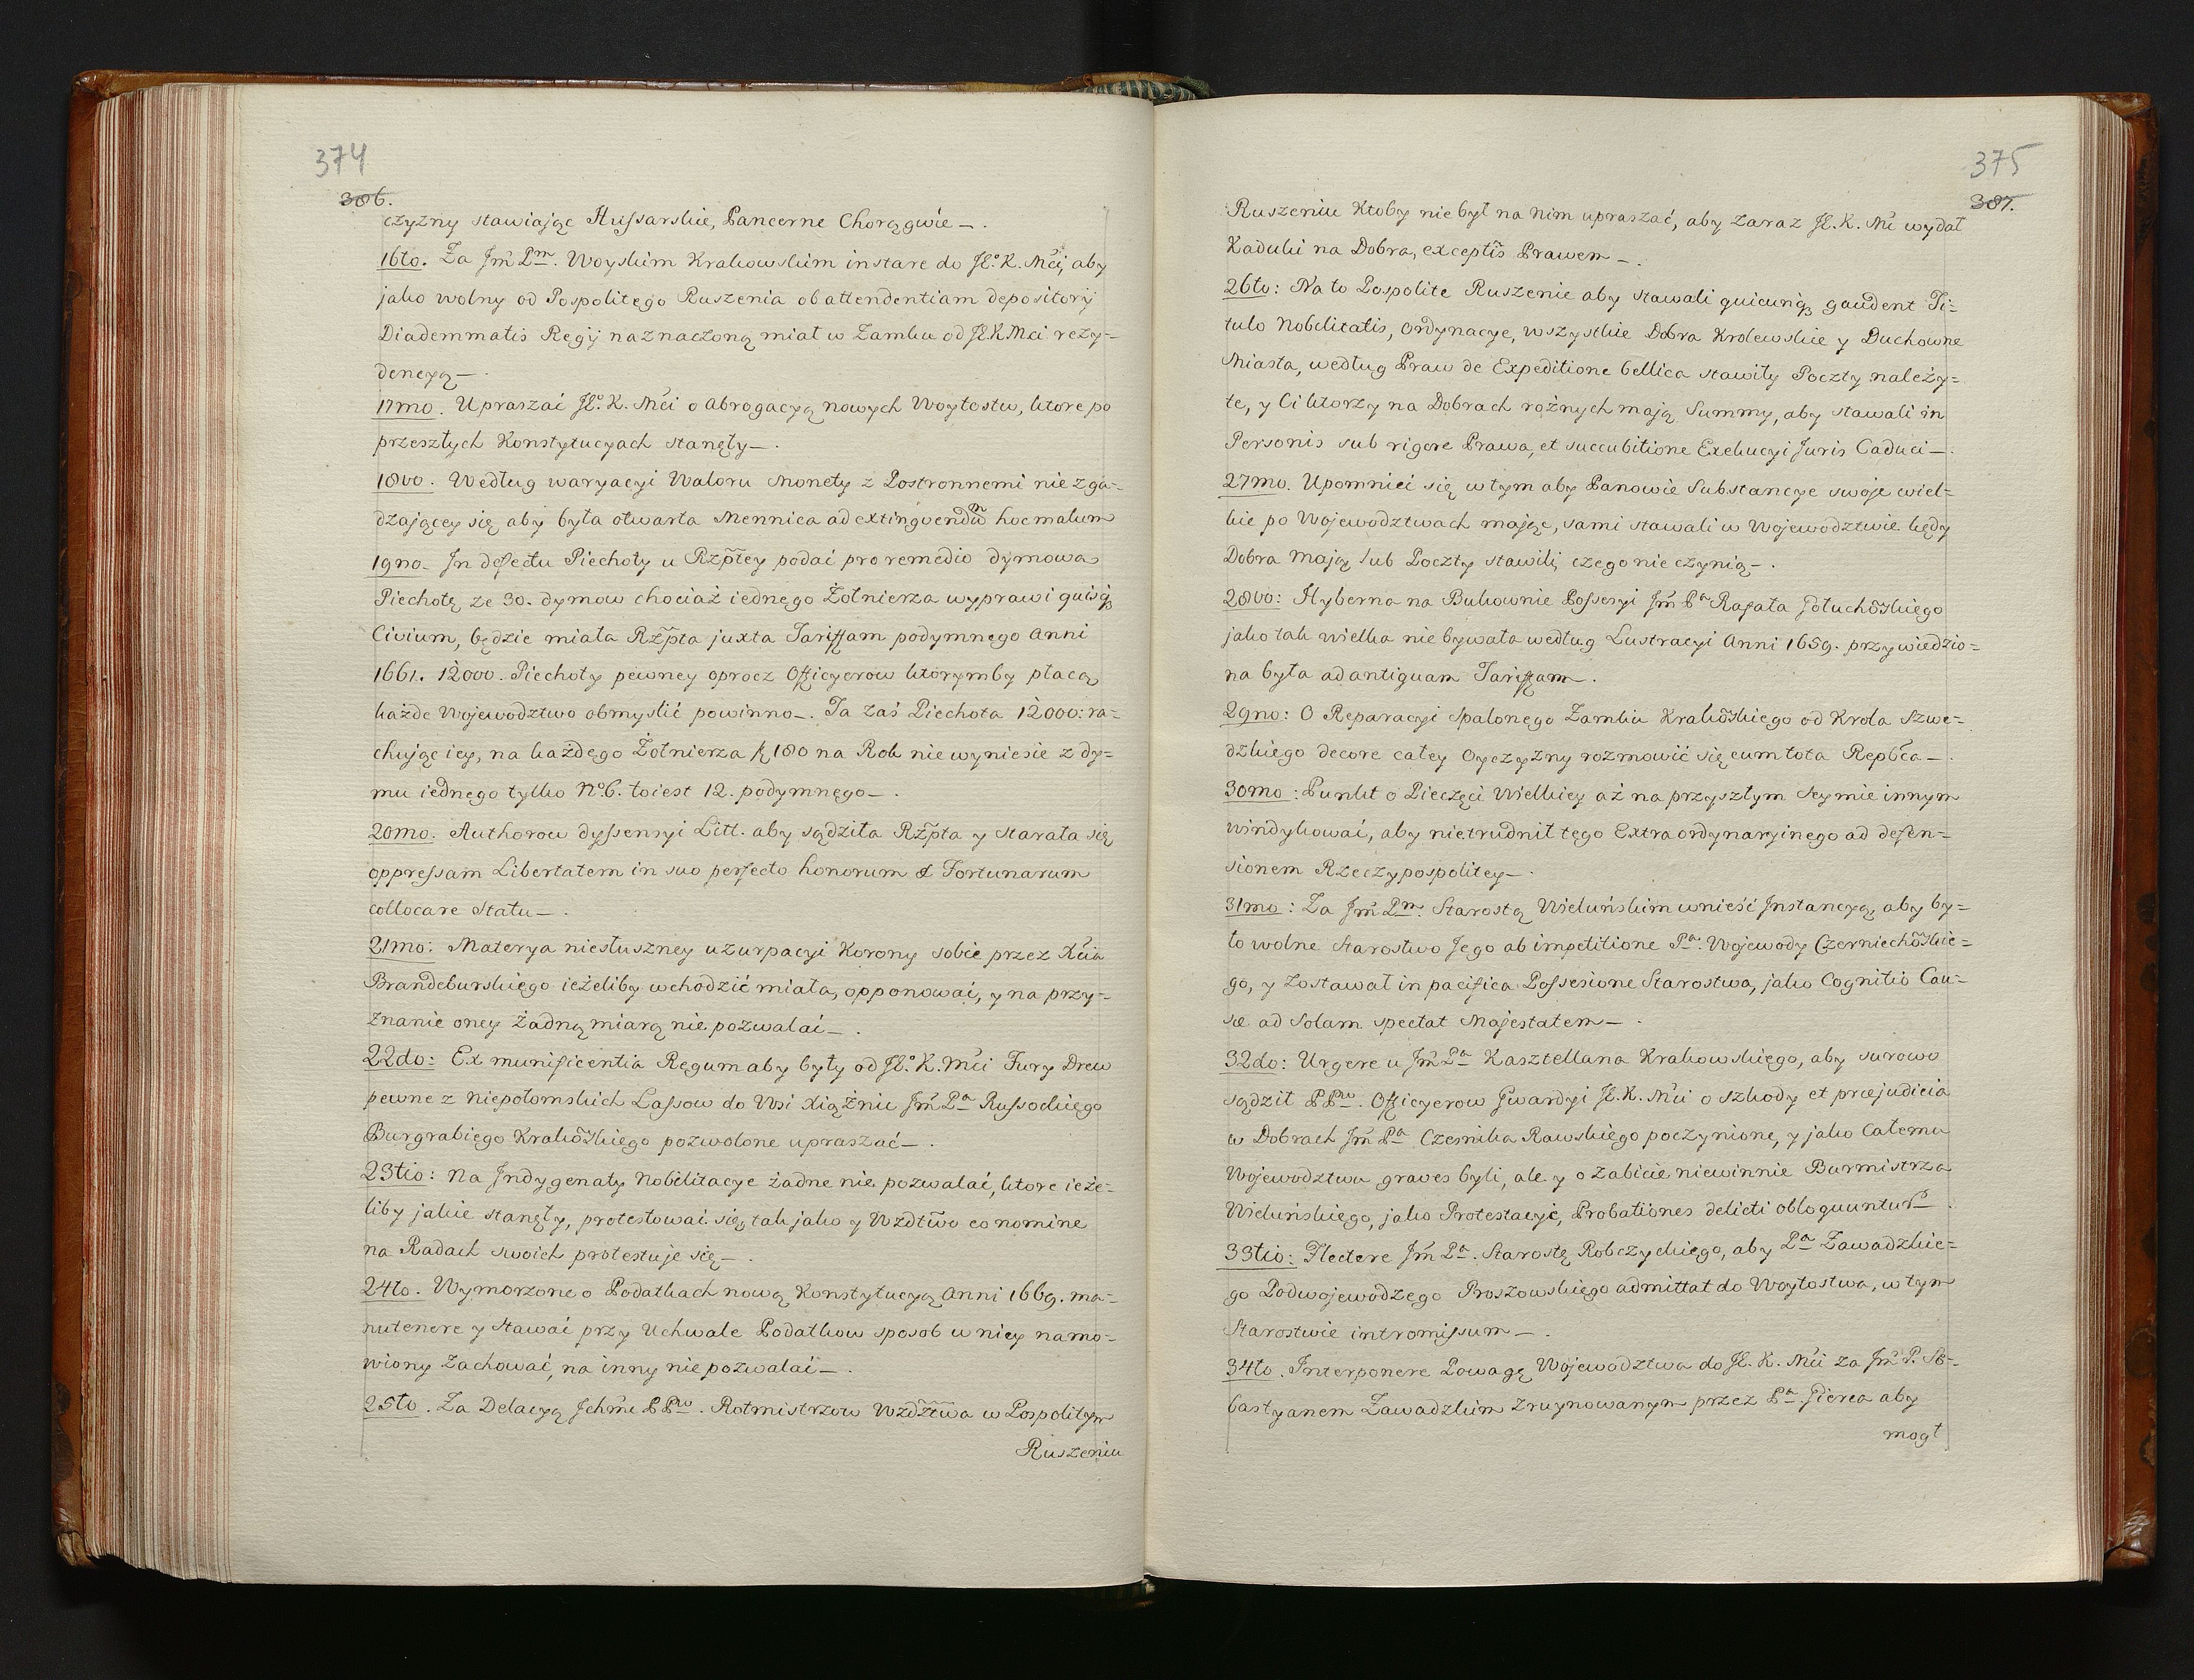 374
386.
czyzny stawiając Hussarskie, Pancerne Chorągwie —.
16to. Za Jm̃ Pm. Woyskim Krakowskim instare do JKo. K. Mći, aby
jako wolny od Pospolitego Ruszenia ob attendentiam depositorÿ
Diademmatis Regÿ naznaczoną miał w Zamku od JK. K Mci rezy-
dencyą —.
17mo. Upraszać JKo. K. Mći o abrogacyą nowych Woytostw, ktore po
przeszłych Konstytucyach stanęły —.
18vo. Według waryacyi Waloru Monety z Postronnemi nie zga-
dzającey się aby była otwarta Mennica ad extinguendũm hoc malum
19no. In defectu Piechoty u Rzp̃tey podać pro remedio dymowa
Piechotę ze 30. dymow chociaż iednego Żołnierza wyprawi quisq3
Civium, będzie miała Rzp̃ta juxta Tariffam podymnego Anni
1661. 12000. Piechoty pewney oprocz Officyerow ktorymby płacą
każde Wojewodztwo obmyslić powinno —. Ta zaś Piechota 12000: ra-
chując iey, na każdego Żołnierza f 180 na Rok nie wyniesie z dy-
mu iednego tylko No. 6. to iest 12. podymnego —.
20mo. Authorow dyssensyi Litt. aby sądziła Rzp̃ta y starała się
oppressam Libertatem in suo perfecto honorum & Fortunarum
collocare Statu —.
21mo: Materya niesłuszney uzurpacyi Korony sobie przez Xćia
Brandeburskiego ieżeliby wchodzić miała, opponować, y na przy-
znanie oney żadną miarą nie pozwalać —.
22do: Ex munificentia Regum aby były od JKo. K. Mći Fury Drew
pewne z Niepołomskich Lassow do Wsi Xiążnic Jm̃ Pa Russockiego
Burgrabiego Krakõskiego pozwolone upraszać —.
23tio: Na Jndygenaty Nobilitacye żadne nie pozwalać, ktore ieże-
liby jakie stanęły, protestować się, tak jako y Wzdtwo eo nomine
na Radach swoich protestuje się —.
24to. Wymorzone o Podatkach nową Konstytucyą Anni 1669. ma-
nutenere y stawać przy Uchwale Podatkow sposob w niey namo-
wiony zachować, na inny nie pozwalać —.
25to. Za Delacyą Jchm̃c PPw. Rotmistrzow Wzdztwa w Pospolitym
Ruszeniu
375
387.
Ruszeniu Ktoby nie był na nim upraszać, aby zaraz JK. K. Mć wydał
Kaduki na Dobra, exceptis Prawem —.
26to: Na to Pospolite Ruszenie aby stawali quicunq3 gaudent Ti-
tulo Nobilitatis, Ordynacye, wszystkie Dobra Krolewskie y Duchowne
Miasta, według Praw de Expeditione bellica stawiły Poczty należy-
te, y Ci ktorzy na Dobrach rożnych mają Summy, aby stawali in
Personis sub rigore Prawa, et succubitione Exekucyi Juris Caduci —.
27mo. Upomnieć się w tym aby Panowie Substancye swoje wiel-
kie po Wojewodztwach mając, sami stawali w Wojewodztwie kędy
Dobra mają lub Poczty stawili, czego nie czynią —.
28vo: Hyberna na Bukownie Possesyi Jm̃ Pa Rafała Gołuchõskiego
jako tak wielka nie bywała według Lustracyi Anni 1659. przywiedzio-
na była ad antiquam Tariffam —.
29no: O Reparacyi spalonego Zamku Krakõskiego od Krola Szwe-
dzkiego decore całey Oyczyzny rozmowić się cum tota Repb̃ca —.
30mo: Punkt o Pieczęci Wielkiey aż na przyszłym Seymie innym
windykować, aby nie trudnił tego Extraordynaryinego ad defen-
sionem Rzeczypospolitey —.
31mo: Za Jm̃ Pm. Starostą Wieluńskim wnieść Jnstancyą, aby by-
ło wolne Starostwo Jego ab impetitione Pa. Wojewody Czerniechõskie-
go, y zostawał in pacifica Possesione Starostwa, jako Cognitio Cau-
sæ ad Solam spectat Majestatem —.
32do: Urgere u Jm̃ Pa Kasztellana Krakowskiego, aby surowo
sądził PPw. Officyerow Gwardyi JK. K. Mći o szkody et præjudicia
w Dobrach Jm̃ Pa Czesnika Rawskiego poczynione, y jako całemu
Wojewodztwu graves byli, ale y o zabicie niewinnie Burmistrza
Wieluńskiego, jako Protestacye, Probationes delicti obloquuntur —.
33tio: Flectere Jm̃ Pa. Starostę Robczyckiego, aby Pa Zawadzkie-
go Podwojewodzego Proszowskiego admittat do Woytostwa, w tym
Starostwie intromissum —.
34to. Interponere Powagę Wojewodztwa do JK. K. Mći za Jm̃ P. Se-
bastyanem Zawadzkim zruynowanym przez Pa. Gierca aby
mogł